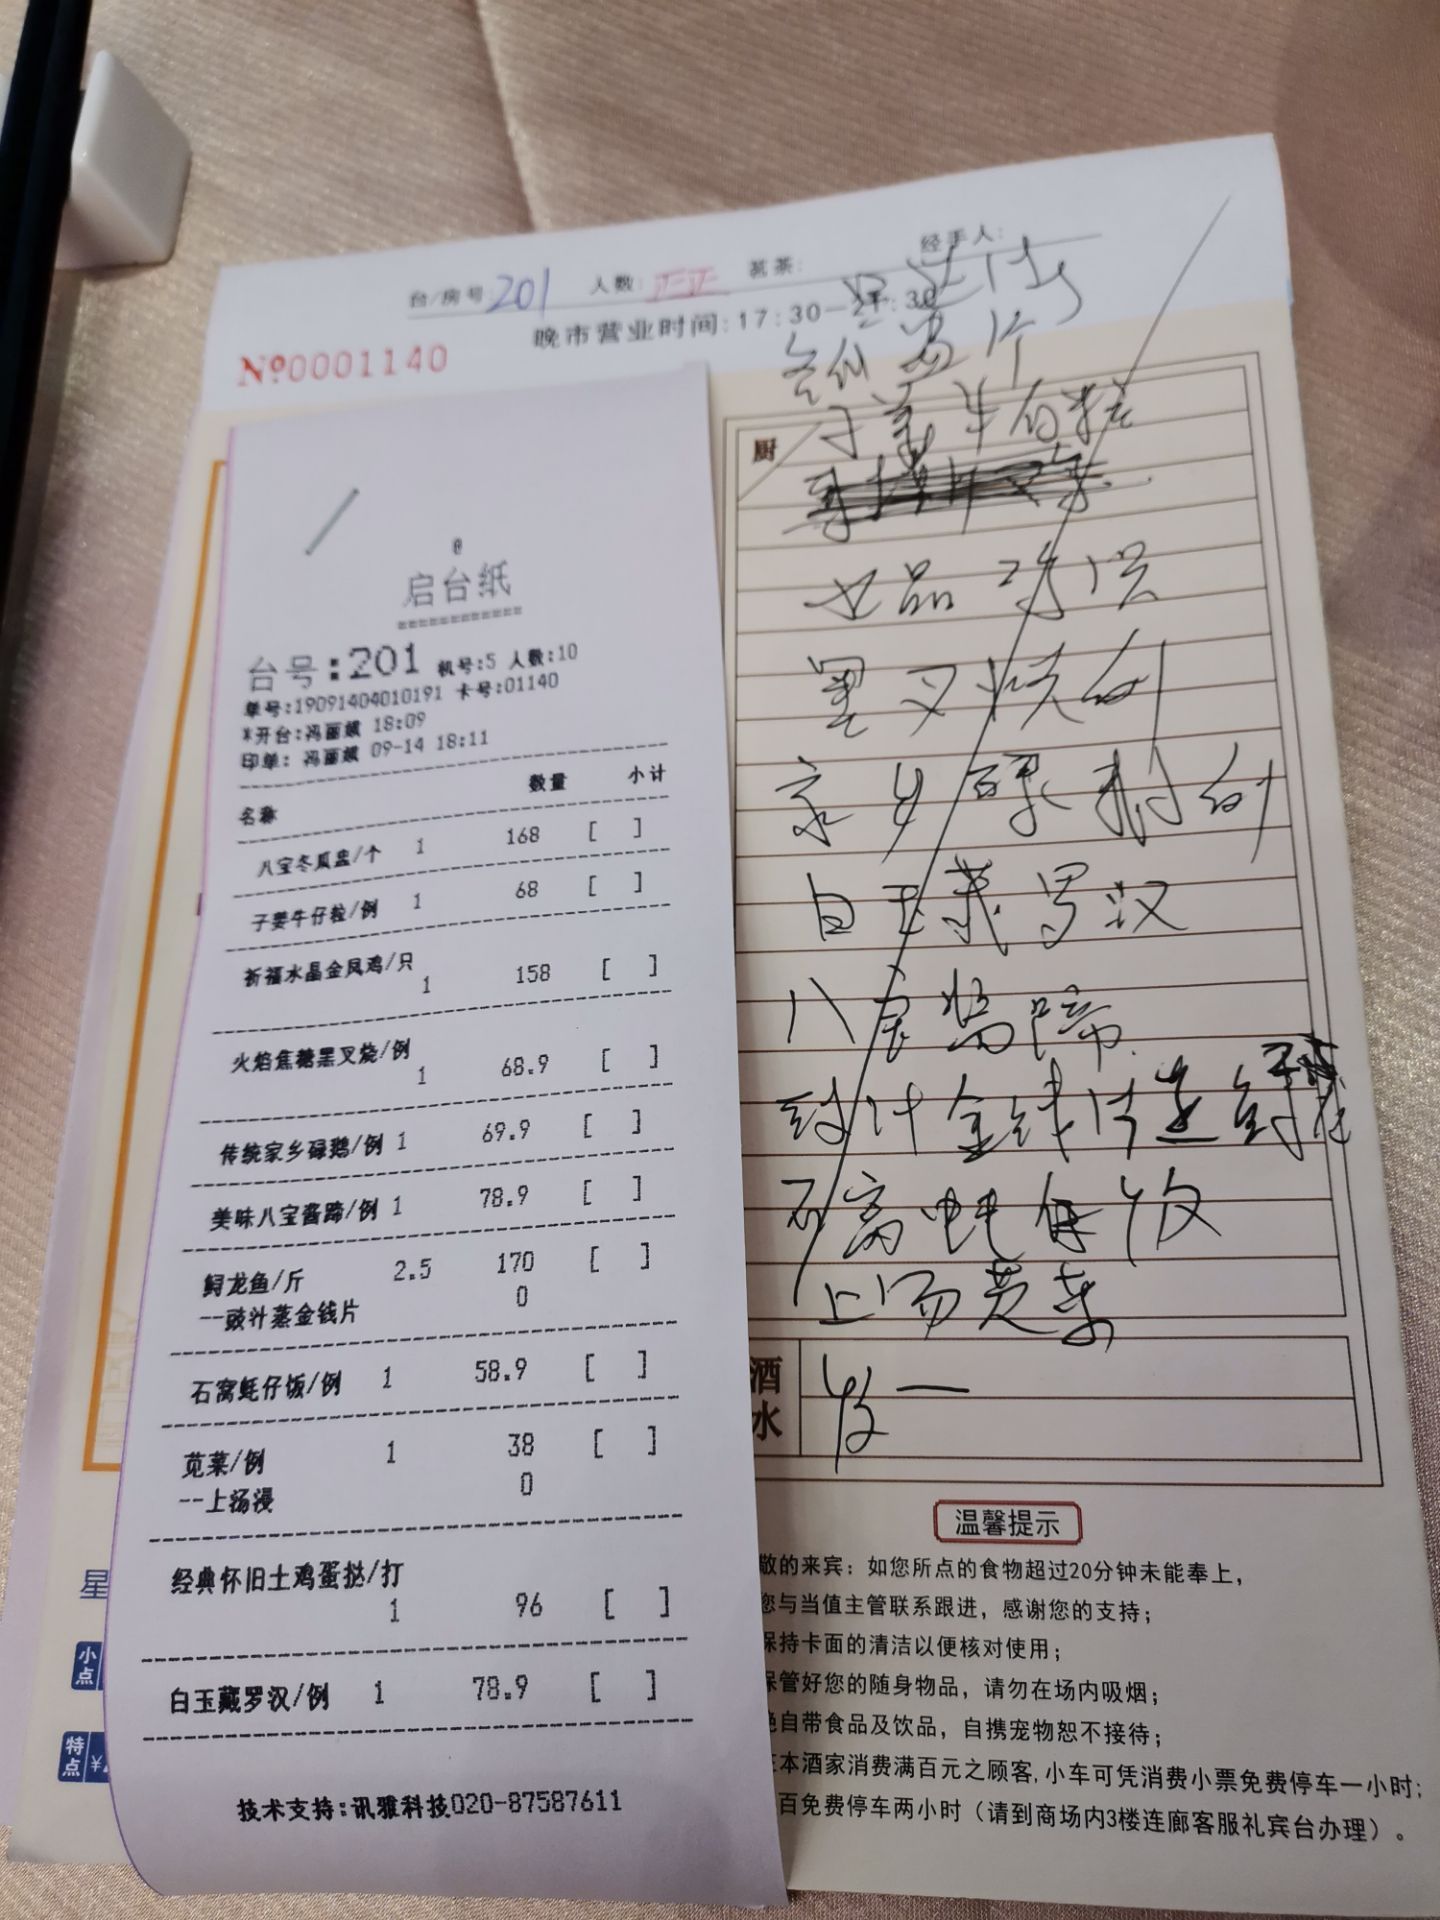 台/房号:201 人数:正正 茗茶: 经手人:
晚市营业时间:17:30-21:30
№0001140
@
启台纸
============
台号:201 机号:5 人数:10
单号:19091404010191 卡号:01140
*开台:冯丽嫔 18:09
印单: 冯丽嫔 09-14 18:11
名称 数量 小计
八宝冬瓜盅/个 1 168 [ ]
子姜牛仔粒/例 1 68 [ ]
祈福水晶金凤鸡/只
1 158 [ ]
火焰焦糖黑叉烧/例
1 68.9 [ ]
传统家乡碌鹅/例 1 69.9 [ ]
美味八宝酱蹄/例 1 78.9 [ ]
鲟龙鱼/斤 2.5 170 [ ]
--豉汁蒸金钱片 0
石窝蚝仔饭/例 1 58.9 [ ]
苋菜/例 1 38 [ ]
--上汤浸 0
经典怀旧土鸡蛋挞/打
1 96 [ ]
白玉藏罗汉/例 1 78.9 [ ]
技术支持:讯雅科技020-87587611
厨
子姜牛仔粒
黑叉烧例
家乡碌鹅例
白玉藏罗汉
八宝酱蹄
豉汁金钱片
石窝蚝仔饭
上汤苋菜
酒水
温馨提示
敬的来宾：如您所点的食物超过20分钟未能奉上，
您与当值主管联系跟进，感谢您的支持；
保持卡面的清洁以便核对使用；
保管好您的随身物品，请勿在场内吸烟；
绝自带食品及饮品，自携宠物恕不接待；
在本酒家消费满百元之顾客,小车可凭消费小票免费停车一小时;
百免费停车两小时（请到商场内3楼连廊客服礼宾台办理）。
星
小点
特点
¥